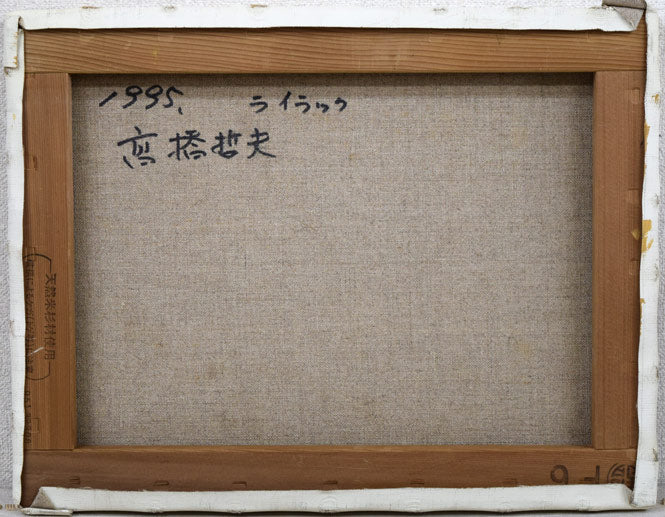 1995. ライラック
高橋哲夫
天然米杉材使用